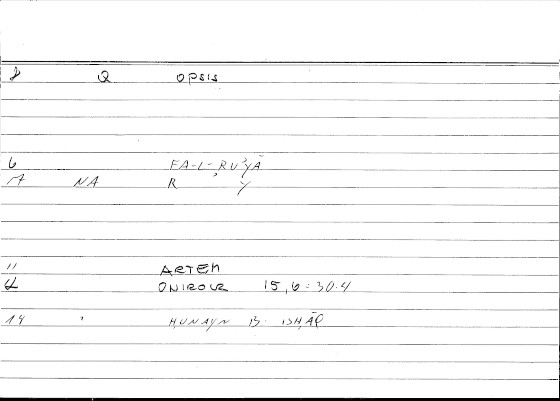 8 Q OPSIS
6 FA-L-RU'YĀ
NA R Y
11 ARTEM
ONIROCR 15,6 = 30.4
14 ' ḤUNAYN B. ISḤĀQ